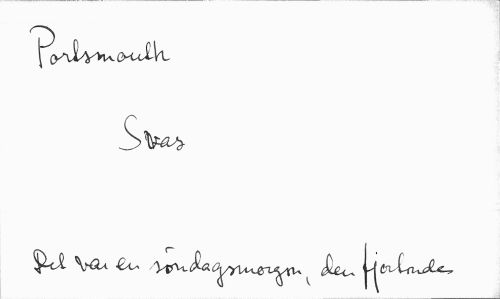 Portsmouth
Svar
Det var en söndagsmorgon, den fjortondes